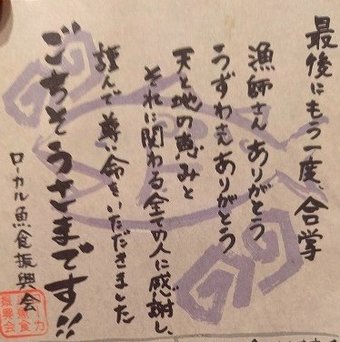 最後にもう一度、合掌
漁師さんありがとう
うずわさんありがとう
天と地の恵みと
それに関わる全ての人に感謝し、
謹んで尊い命をいただきました
ごちそうさまです!!
ローカル魚食振興会